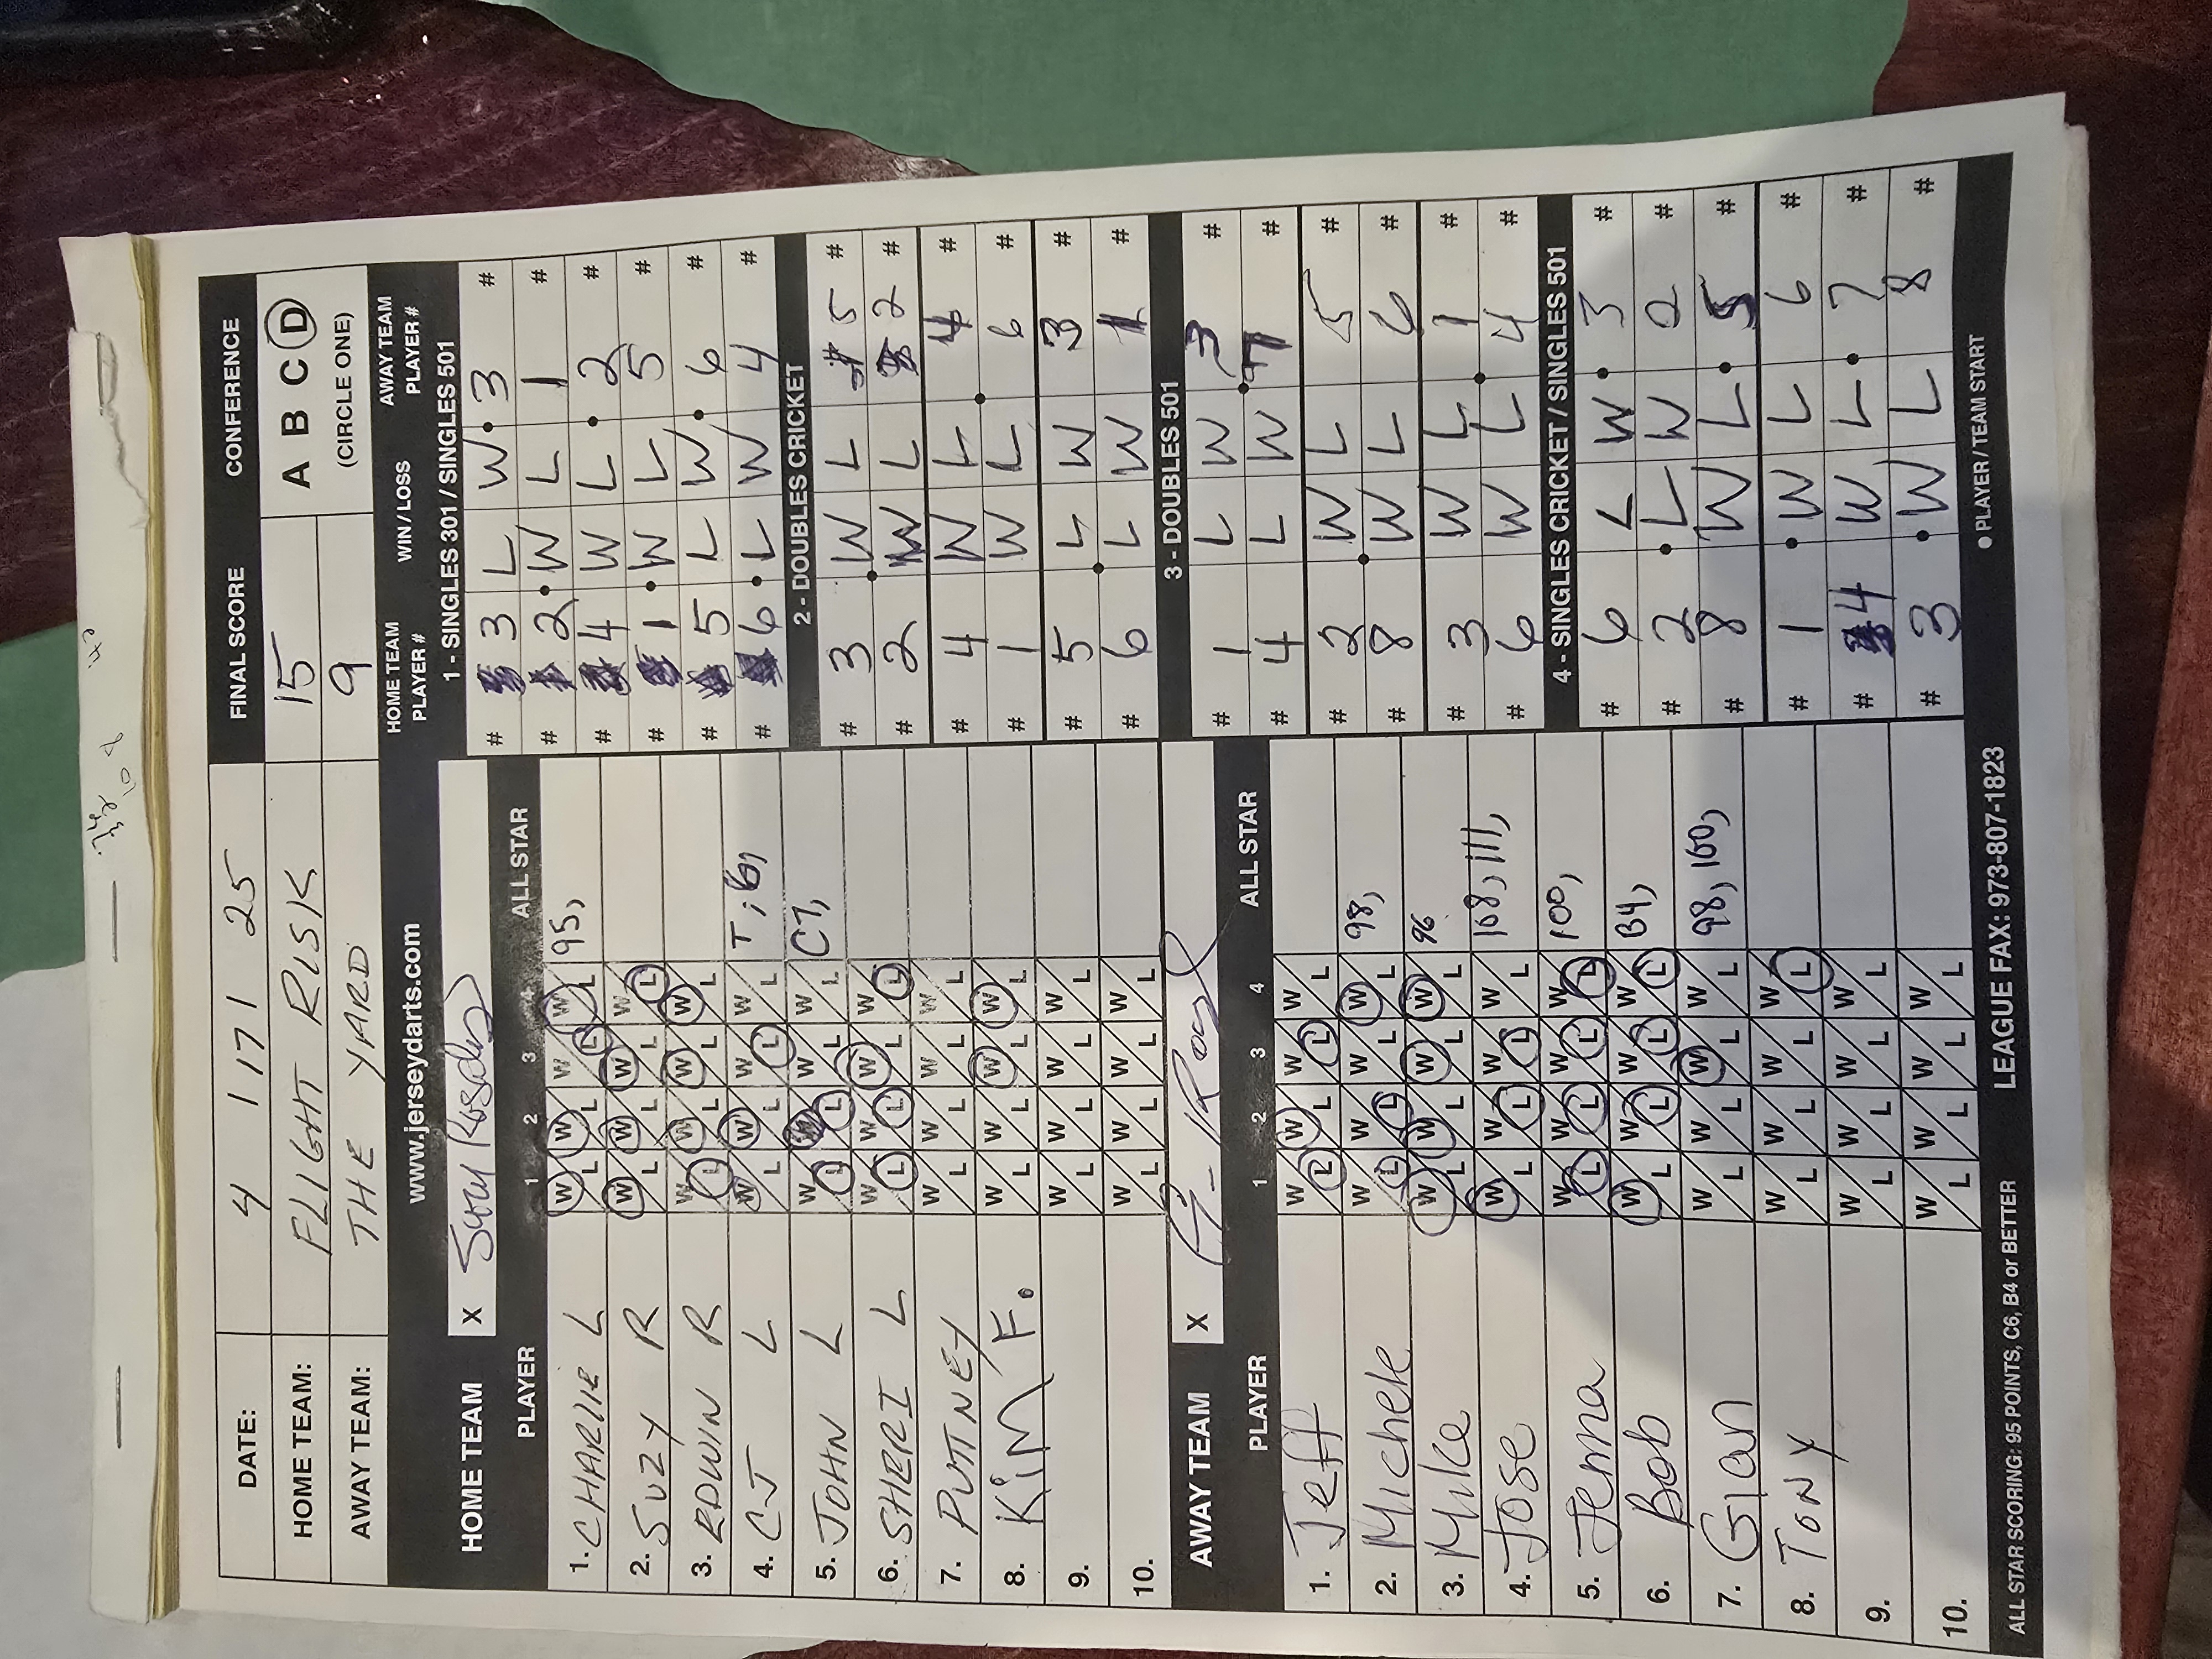 DATE: 4 / 17 / 25 FINAL SCORE CONFERENCE
HOME TEAM: FLIGHT RISK 15 A B C D
AWAY TEAM: THE YARD 9 (CIRCLE ONE)
www.jerseydarts.com
HOME TEAM X
PLAYER 1 2 3 4 ALL STAR
1. CHARLIE L W/L W/L W/L W/L 95,
2. SUZY R W/L W/L W/L W/L
3. EDWIN R W/L W/L W/L W/L
4. CJ L W/L W/L W/L W/L
5. JOHN L W/L W/L W/L W/L C7,
6. SHERI L W/L W/L W/L W/L
7. PUTNEY W/L W/L W/L W/L
8. KIM F. W/L W/L W/L W/L
9. W/L W/L W/L W/L
10. W/L W/L W/L W/L
AWAY TEAM X
PLAYER 1 2 3 4 ALL STAR
1. Jeff W/L W/L W/L W/L
2. Michele W/L W/L W/L W/L 98,
3. Mike W/L W/L W/L W/L 96
4. Jose W/L W/L W/L W/L 108, 111,
5. Jenna W/L W/L W/L W/L 100,
6. Bob W/L W/L W/L W/L B4,
7. Gian W/L W/L W/L W/L 98, 100,
8. TONY W/L W/L W/L W/L
9. W/L W/L W/L W/L
10. W/L W/L W/L W/L
ALL STAR SCORING: 95 POINTS, C6, B4 or BETTER LEAGUE FAX: 973-807-1823
HOME TEAM PLAYER # WIN / LOSS AWAY TEAM PLAYER #
1 - SINGLES 301 / SINGLES 501
# 3 L W 3 #
# 2 W L 1 #
# 4 W L 2 #
# 1 W L 5 #
# 5 L W 6 #
# 6 L W 4 #
2 - DOUBLES CRICKET
# 3 W L 5 #
# 2 W L 2 #
# 4 W L 4 #
# 1 W L 6 #
# 5 L W 3 #
# 6 L W 1 #
3 - DOUBLES 501
# 1 L W 3 #
# 4 L W 7 #
# 2 W L 5 #
# 8 W L 6 #
# 3 W L 1 #
# 6 W L 4 #
4 - SINGLES CRICKET / SINGLES 501
# 6 L W 3 #
# 2 L W 2 #
# 8 W L 5 #
# 1 W L 6 #
# 4 W L 7 #
# 3 W L 8 #
● PLAYER / TEAM START